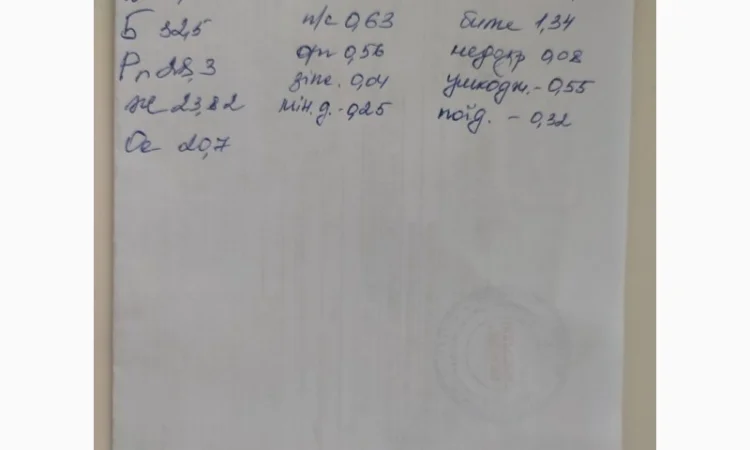 Б 32,5 п/с 0,63 бите 1,34
Рп 28,3 фп 0,56 недозр 0,08
Ж 23,82 зіпс. 0,04 ушкодж. - 0,55
Ос 20,7 мін. д. - 0,25 поїд. - 0,32